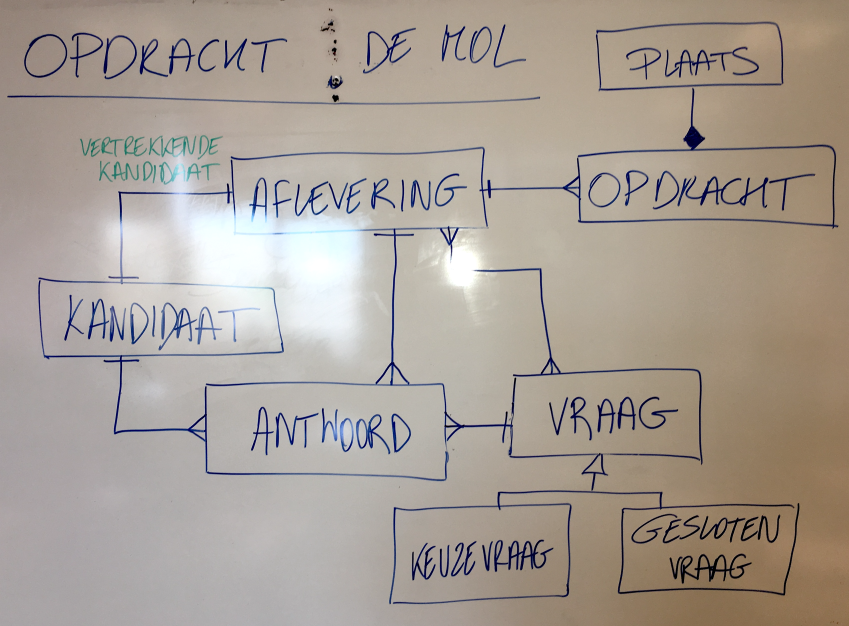 OPDRACHT : DE MOL
PLAATS
VERTREKKENDE
KANDIDAAT
AFLEVERING
OPDRACHT
KANDIDAAT
ANTWOORD
VRAAG
KEUZEVRAAG
GESLOTEN
VRAAG